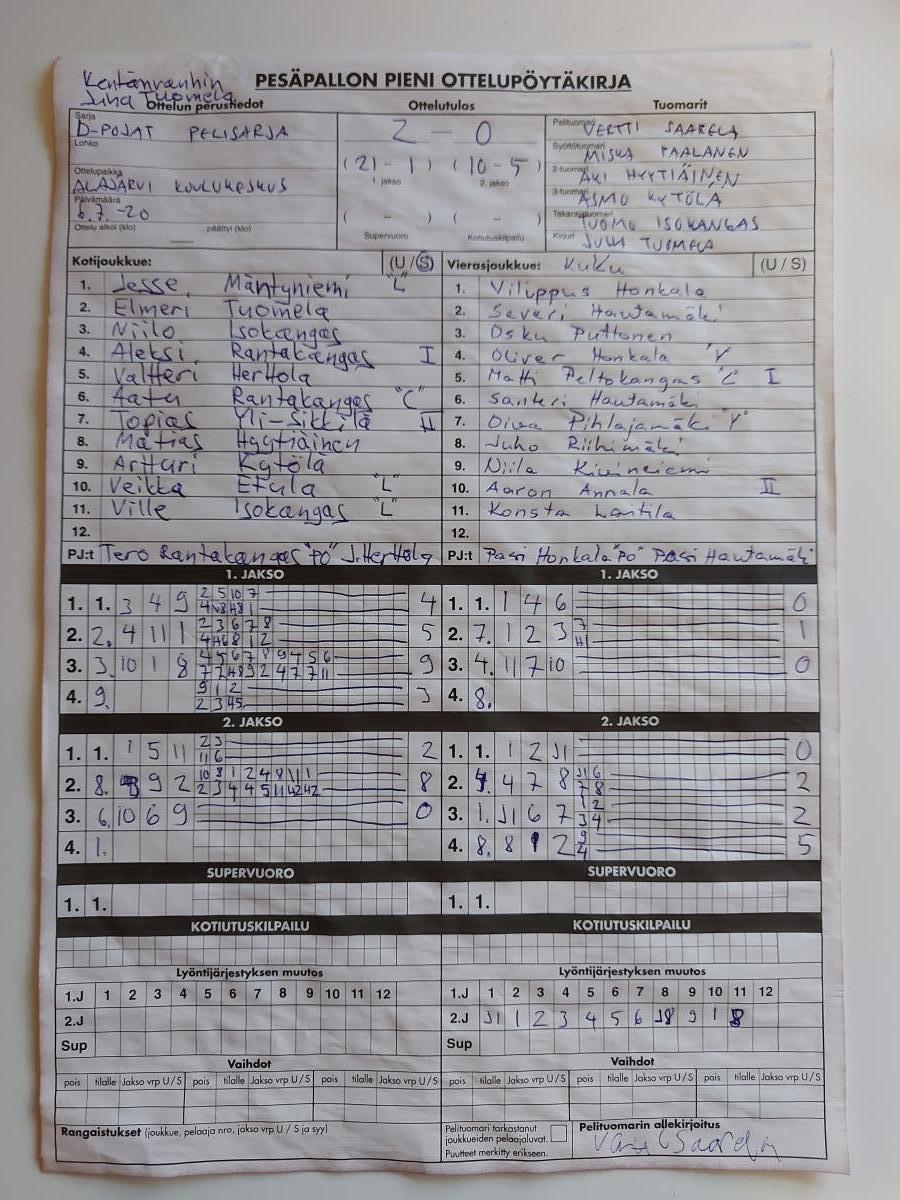 Kentänvanhin
Juha Tuomela
PESÄPALLON PIENI OTTELUPÖYTÄKIRJA
Ottelun perustiedot
Ottelutulos
Tuomarit
Sarja
D-POJAT PELISARJA
Lohko
Ottelupaikka
ALAJÄRVI KOULUKESKUS
Päivämäärä
6.7.-20
Ottelu alkoi (klo) päättyi (klo)
2 - 0
(21 - 1) (10 - 5)
1. jakso 2. jakso
( - ) ( - )
Supervuoro Kotiutuskilpailu
Pelituomari VERTTI SAARELA
Syöttötuomari MISKA PAALANEN
2-tuomari AKI HYYTIÄINEN
3-tuomari ASMO KYTÖLÄ
Takarajatuomari TUOMO ISOKANGAS
Kirjuri JUHA TUOMELA
Kotijoukkue: (U / S)
1. Jesse Mäntyniemi "L"
2. Elmeri Tuomela
3. Niilo Isokangas
4. Aleksi Rantakangas I
5. Valtteri Herttola
6. Aatu Rantakangas "C"
7. Topias Yli-Sikkilä II
8. Matias Hyytiäinen
9. Artturi Kytölä
10. Veikka Efula "L"
11. Ville Isokangas "L"
12.
PJ:t Tero Rantakangas "PO" J.Herttola
Vierasjoukkue: KuKu (U / S)
1. Vilippus Honkala
2. Severi Hautamäki
3. Osku Puttonen
4. Oliver Honkala "Y"
5. Matti Peltokangas "C" I
6. Santeri Hautamäki
7. Oiva Pihlajamäki "Y"
8. Juho Riihimäki
9. Niila Kivineiemi
10. Aaron Annala II
11. Konsta Laitila
12.
PJ:t Pasi Honkala "PO" Pasi Hautamäki
1. JAKSO
1. 1. 3 4 9 4
2. 2. 4 11 1 5
3. 3. 10 1 8 9
4. 9. 3
1. JAKSO
1. 1. 1 4 6 0
2. 7. 1 2 3 1
3. 4. 11 7 10 0
4. 8.
2. JAKSO
1. 1. 1 5 11 2
2. 8. 9 2 8
3. 6. 10 6 9 0
4. 1.
2. JAKSO
1. 1. 1 2 J1 0
2. 4. 4 7 8 2
3. 1. J1 6 7 2
4. 8. 8 2 5
SUPERVUORO
1. 1.
SUPERVUORO
1. 1.
KOTIUTUSKILPAILU
KOTIUTUSKILPAILU
Lyöntijärjestyksen muutos
1.J 1 2 3 4 5 6 7 8 9 10 11 12
2.J
Sup
Lyöntijärjestyksen muutos
1.J 1 2 3 4 5 6 7 8 9 10 11 12
2.J J1 1 2 3 4 5 6 7 J8 9 1 8
Sup
Vaihdot
pois tilalle Jakso vrp U / S pois tilalle Jakso vrp U / S pois tilalle Jakso vrp U / S
Vaihdot
pois tilalle Jakso vrp U / S pois tilalle Jakso vrp U / S pois tilalle Jakso vrp U / S
Rangaistukset (joukkue, pelaaja nro, jakso vrp U / S ja syy)
Pelituomari tarkastanut
joukkueiden pelaajaluvat.
Puutteet merkitty erikseen.
Pelituomarin allekirjoitus